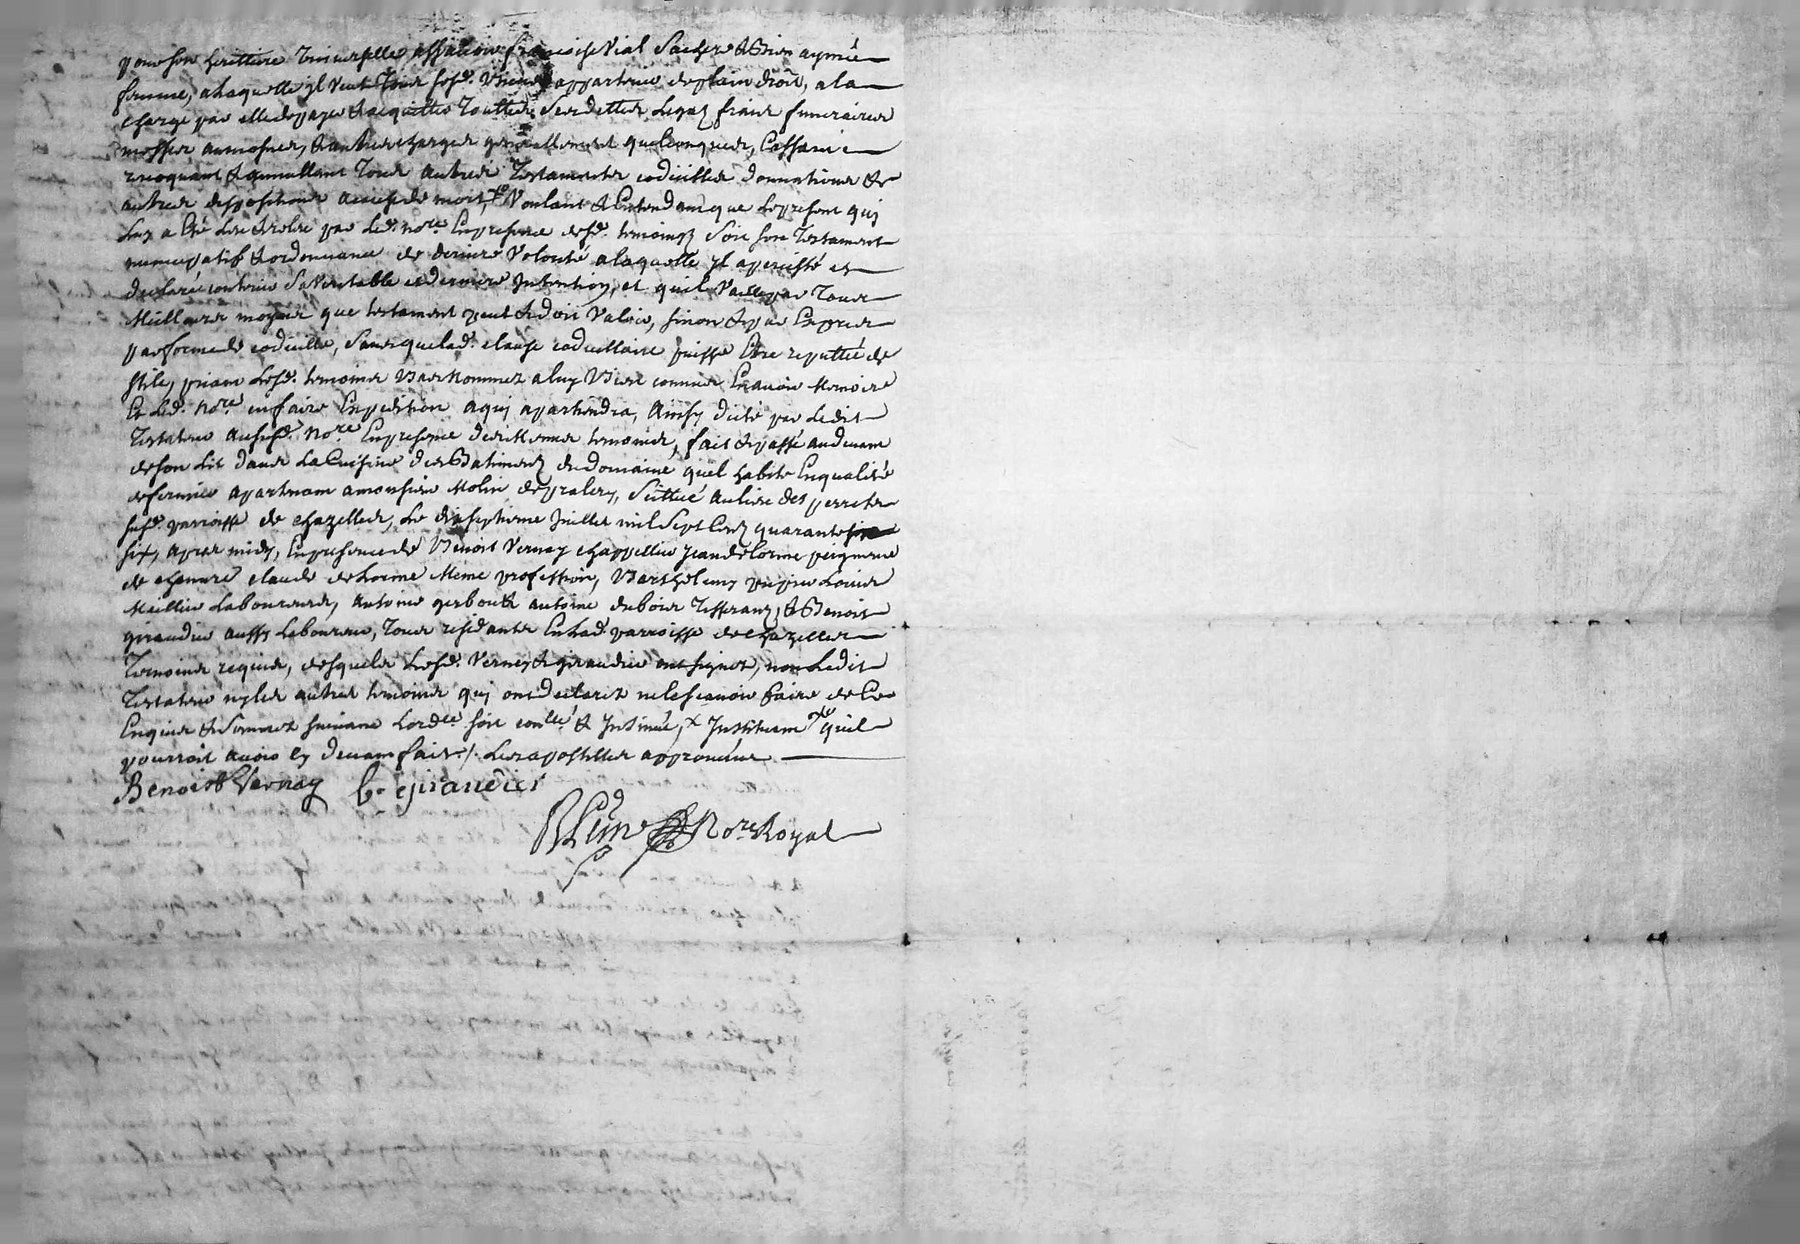 pour son heritiere universelle assavoir francoise Vial sa chere & bien aymée
femme, a laquelle il veut tous sesd. biens appartenir de plain droit, a la
charge par elle de payer & acquitter touttes ses dettes legaz fraix funeraires
messes aumosnes, & autres charges generallement quelconques, Cassant
revoquant & annullant tous autres testaments codicilles donnations &
autres dispositions a cause de mort, Voulant & Entendant que le present qui
luy a été leu & relu par led. no.re En presence desd. temoings soit son testament
nuncupatif & ordonnance de derniere Volonté a laquelle il a percisté et
declarée contenir sa veritable et derniere Intention, et quil vaille par tous
Meilleurs moyens que testament peut & doit valoir, sinon & par Exprès
par forme de codicille, sans que lad. clause codicillaire puisse Etre reputtée de
stile, priant lesd. temoins bas nommez a luy bien connus En avoir Memoire
Et led. no.re en faire Expedition a qui apartiendra, Ainsy dicté par ledit
testateur aususd. no.re En presence desd. temoins, fait & passé audevant
de son lit dans La Cuisine des Batiments du domaine quel habite En qualité
de fermier apartenant a monsieur Molin de pralery, scittué au lieu des perrets
susd. parroisse de chazelles, Le dix septieme Juillet mil sept Cent quarante
six, apres midy, En presence de Benoit Vernay chappellier Jean delorme peigneur
de chanvre claude delorme Meme profession, Barthelemy Louis
Meillier Laboureurs, Antoine gerboud antoine dubois Tisserans, & Benoit
giraudier aussy Laboureur, tous residants En lad. parroisse de chazelles
temoins requis, desquels lesd. Vernay & giraudier ont signez, non ledit
testateur ny les autres temoins qui ont declarez ne le scavoir faire de Ce
Enquis & sommez suivant Lord.ce soit con.llé & Insinué, x Instituant quil
pourroit avoir cy devant fait / Les apostilles approuvées
Benoist Vernay b. giraudier
No.re Royal